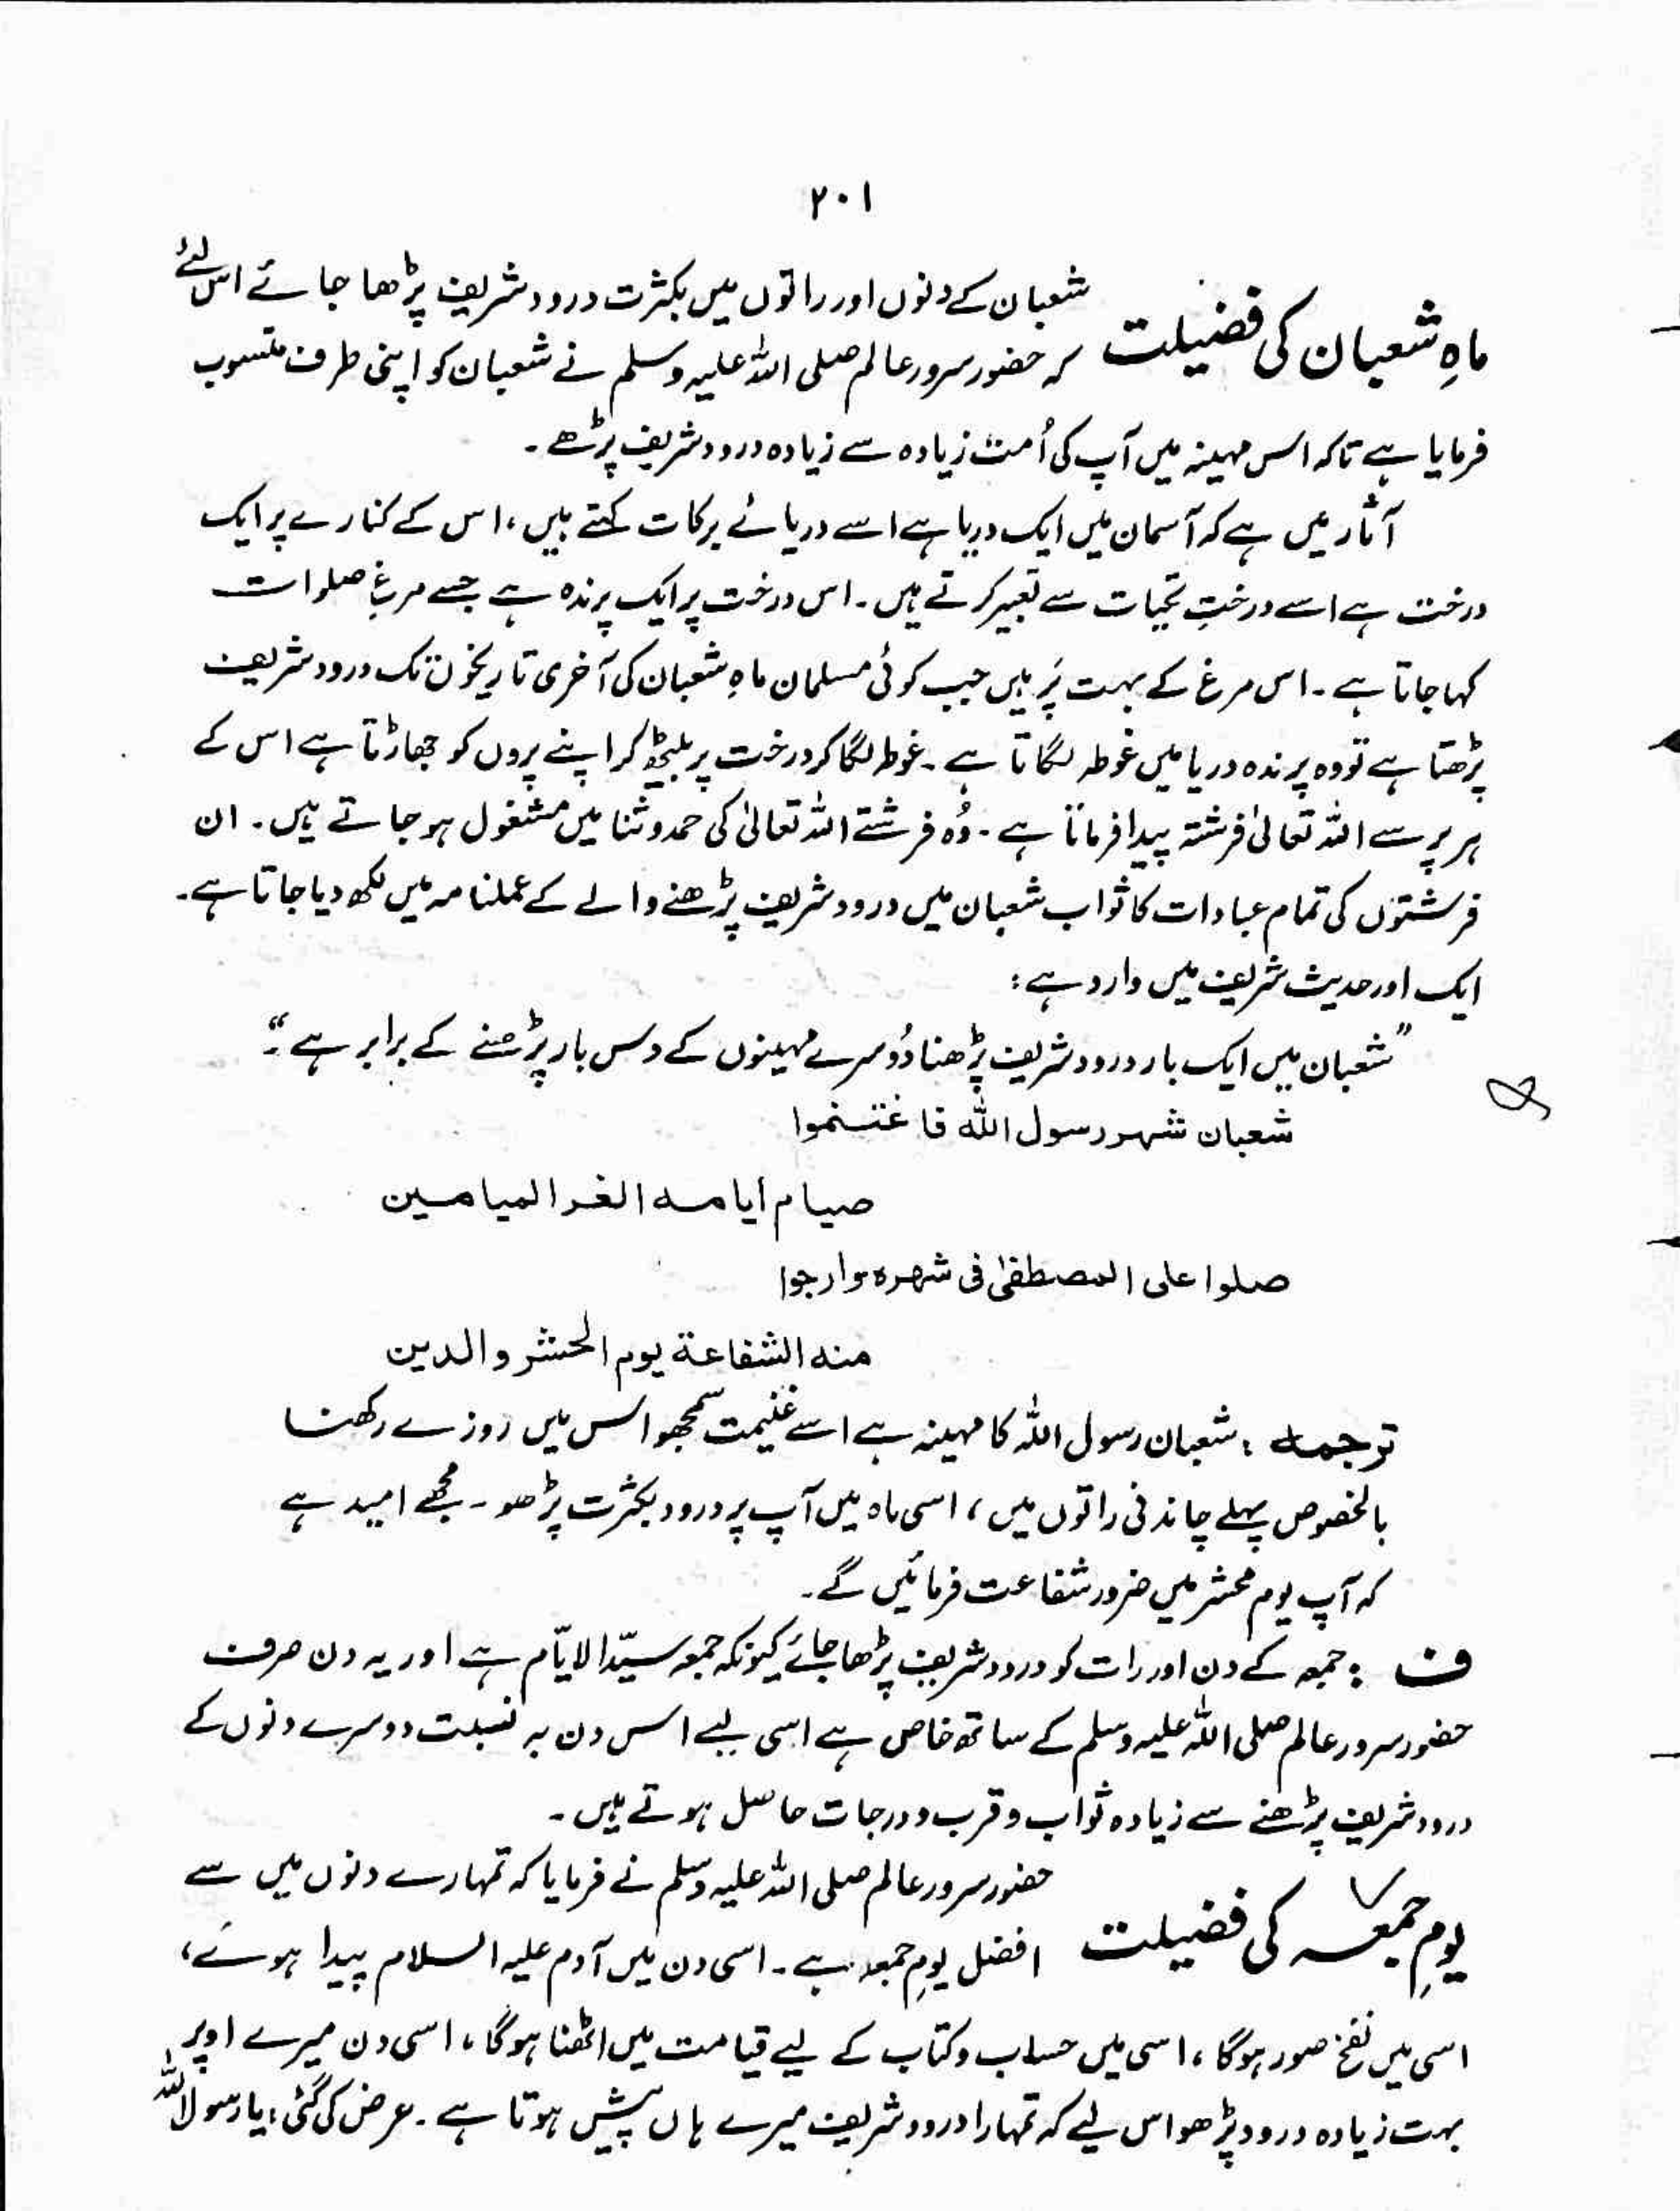 ٢٠١
شعبان کے دنوں اور راتوں میں بکثرت درود شریف پڑھا جائے اس لئے
ماہِ شعبان کی فضیلت کہ حضور سرور عالم صلی اللہ علیہ وسلم نے شعبان کو اپنی طرف منسوب
فرمایا ہے تاکہ اس مہینہ میں آپ کی اُمت زیادہ سے زیادہ درود شریف پڑھے ۔
آثار میں ہے کہ آسمان میں ایک دریا ہے اسے دریائے برکات کہتے ہیں ، اس کے کنارے پر ایک
درخت ہے اسے درختِ تحیات سے تعبیر کرتے ہیں ۔ اس درخت پر ایک پرندہ ہے جسے مرغِ صلوات
کہا جاتا ہے ۔ اس مرغ کے بہت پَر ہیں جب کوئی مسلمان ماہِ شعبان کی آخری تاریخوں تک درود شریف
پڑھتا ہے تو وہ پرندہ دریا میں غوطہ لگاتا ہے ۔ غوطہ لگا کر درخت پر بیٹھ کر اپنے پروں کو جھاڑتا ہے اس کے
ہر پر سے اللہ تعالیٰ فرشتہ پیدا فرماتا ہے ۔ وُہ فرشتے اللہ تعالیٰ کی حمد و ثنا میں مشغول ہو جاتے ہیں ۔ ان
فرشتوں کی تمام عبادات کا ثواب شعبان میں درود شریف پڑھنے والے کے عملنامہ میں لکھ دیا جاتا ہے ۔
ایک اور حدیث شریف میں وارد ہے :
”شعبان میں ایک بار درود شریف پڑھنا دُوسرے مہینوں کے دس بار پڑھنے کے برابر ہے ۔“
شعبان شهر رسول الله فاغتنموا
صيام ايامه الغر الميامين
صلوا على المصطفىٰ فى شهره وارجوا
منه الشفاعة يوم الحشر والدين
ترجمہ : شعبان رسول اللہ کا مہینہ ہے اسے غنیمت سمجھو اس میں روزے رکھنا
بالخصوص پہلے چاندنی راتوں میں ، اسی ماہ میں آپ پر درود بکثرت پڑھو ۔ مجھے امید ہے
کہ آپ یوم محشر میں ضرور شفاعت فرمائیں گے ۔
ف : جمعہ کے دن اور رات کو درود شریف پڑھا جائے کیونکہ جمعہ سیّد الایّام ہے اور یہ دن صرف
حضور سرور عالم صلی اللہ علیہ وسلم کے ساتھ خاص ہے اسی لیے اس دن بہ نسبت دوسرے دنوں کے
درود شریف پڑھنے سے زیادہ ثواب و قرب و درجات حاصل ہوتے ہیں ۔
حضور سرور عالم صلی اللہ علیہ وسلم نے فرمایا کہ تمہارے دنوں میں سے
یومِ جمعہ کی فضیلت افضل یومِ جمعہ ہے ۔ اسی دن میں آدم علیہ السلام پیدا ہوئے ،
اسی میں نفخ صور ہوگا ، اسی میں حساب و کتاب کے لیے قیامت میں اٹھنا ہوگا ، اسی دن میرے اوپر
بہت زیادہ درود پڑھو اس لیے کہ تمہارا درود شریف میرے ہاں پیش ہوتا ہے ۔ عرض کی گئی : یا رسول اللہ